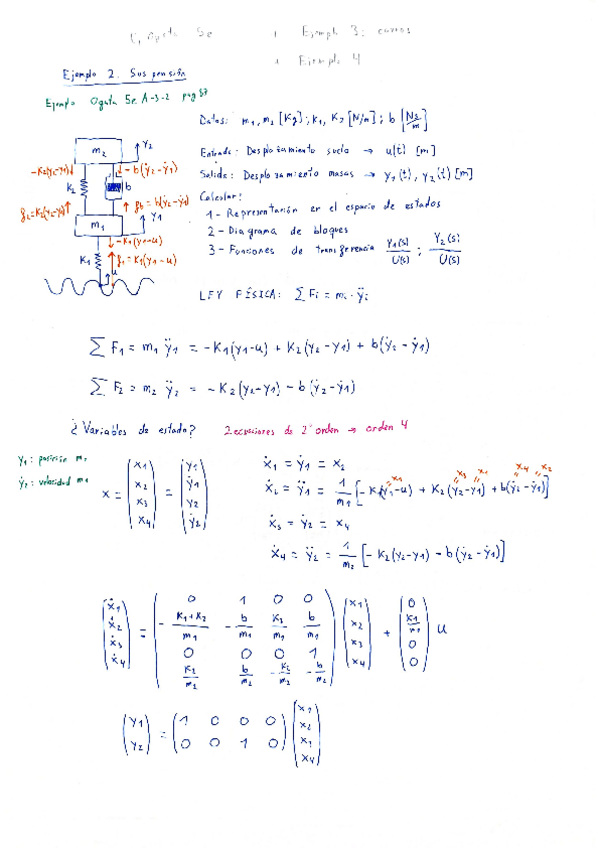 Ogata 5e
Ejemplo 3: carros
Ejemplo 4
Ejemplo 2. Suspensión
Ejemplo Ogata 5e A-3-2 pag 87
Datos: m₁, m₂ [Kg]; K₁, K₂ [N/m]; b [Ns/m]
Entrada: Desplazamiento suelo → u(t) [m]
Salida: Desplazamiento masas → y₁(t), y₂(t) [m]
Calcular:
1- Representación en el espacio de estados
2- Diagrama de bloques
3- Funciones de transferencia Y₁(s)/U(s) ; Y₂(s)/U(s)
m₂
y₂
-K₂(y₂-y₁)
-b(ẏ₂-ẏ₁)
K₂
b
f₂=K₂(y₂-y₁)
f_b = b(ẏ₂-ẏ₁)
m₁
y₁
-K₁(y₁-u)
K₁
f₁=K₁(y₁-u)
u
LEY FÍSICA: ∑ Fi = mi · ÿi
∑ F₁ = m₁ ÿ₁ = -K₁(y₁-u) + K₂(y₂-y₁) + b(ẏ₂-ẏ₁)
∑ F₂ = m₂ ÿ₂ = -K₂(y₂-y₁) - b(ẏ₂-ẏ₁)
¿Variables de estado? 2 ecuaciones de 2º orden → orden 4
y₁: posición m₁
ẏ₁: velocidad m₁
x = (x₁ x₂ x₃ x₄) = (y₁ ẏ₁ y₂ ẏ₂)
ẋ₁ = ẏ₁ = x₂
x₁ x₃ x₁ x₄ x₂
ẋ₂ = ÿ₁ = 1/m₁ [-K₁(y₁-u) + K₂(y₂-y₁) + b(ẏ₂-ẏ₁)]
ẋ₃ = ẏ₂ = x₄
ẋ₄ = ÿ₂ = 1/m₂ [-K₂(y₂-y₁) - b(ẏ₂-ẏ₁)]
ẋ₁ 0 1 0 0 x₁ 0
ẋ₂ = -(K₁+K₂)/m₁ -b/m₁ K₂/m₁ b/m₁ x₂ + K₁/m₁ u
ẋ₃ 0 0 0 1 x₃ 0
ẋ₄ K₂/m₂ b/m₂ -K₂/m₂ -b/m₂ x₄ 0
(y₁ y₂) = (1 0 0 0
0 0 1 0) (x₁ x₂ x₃ x₄)